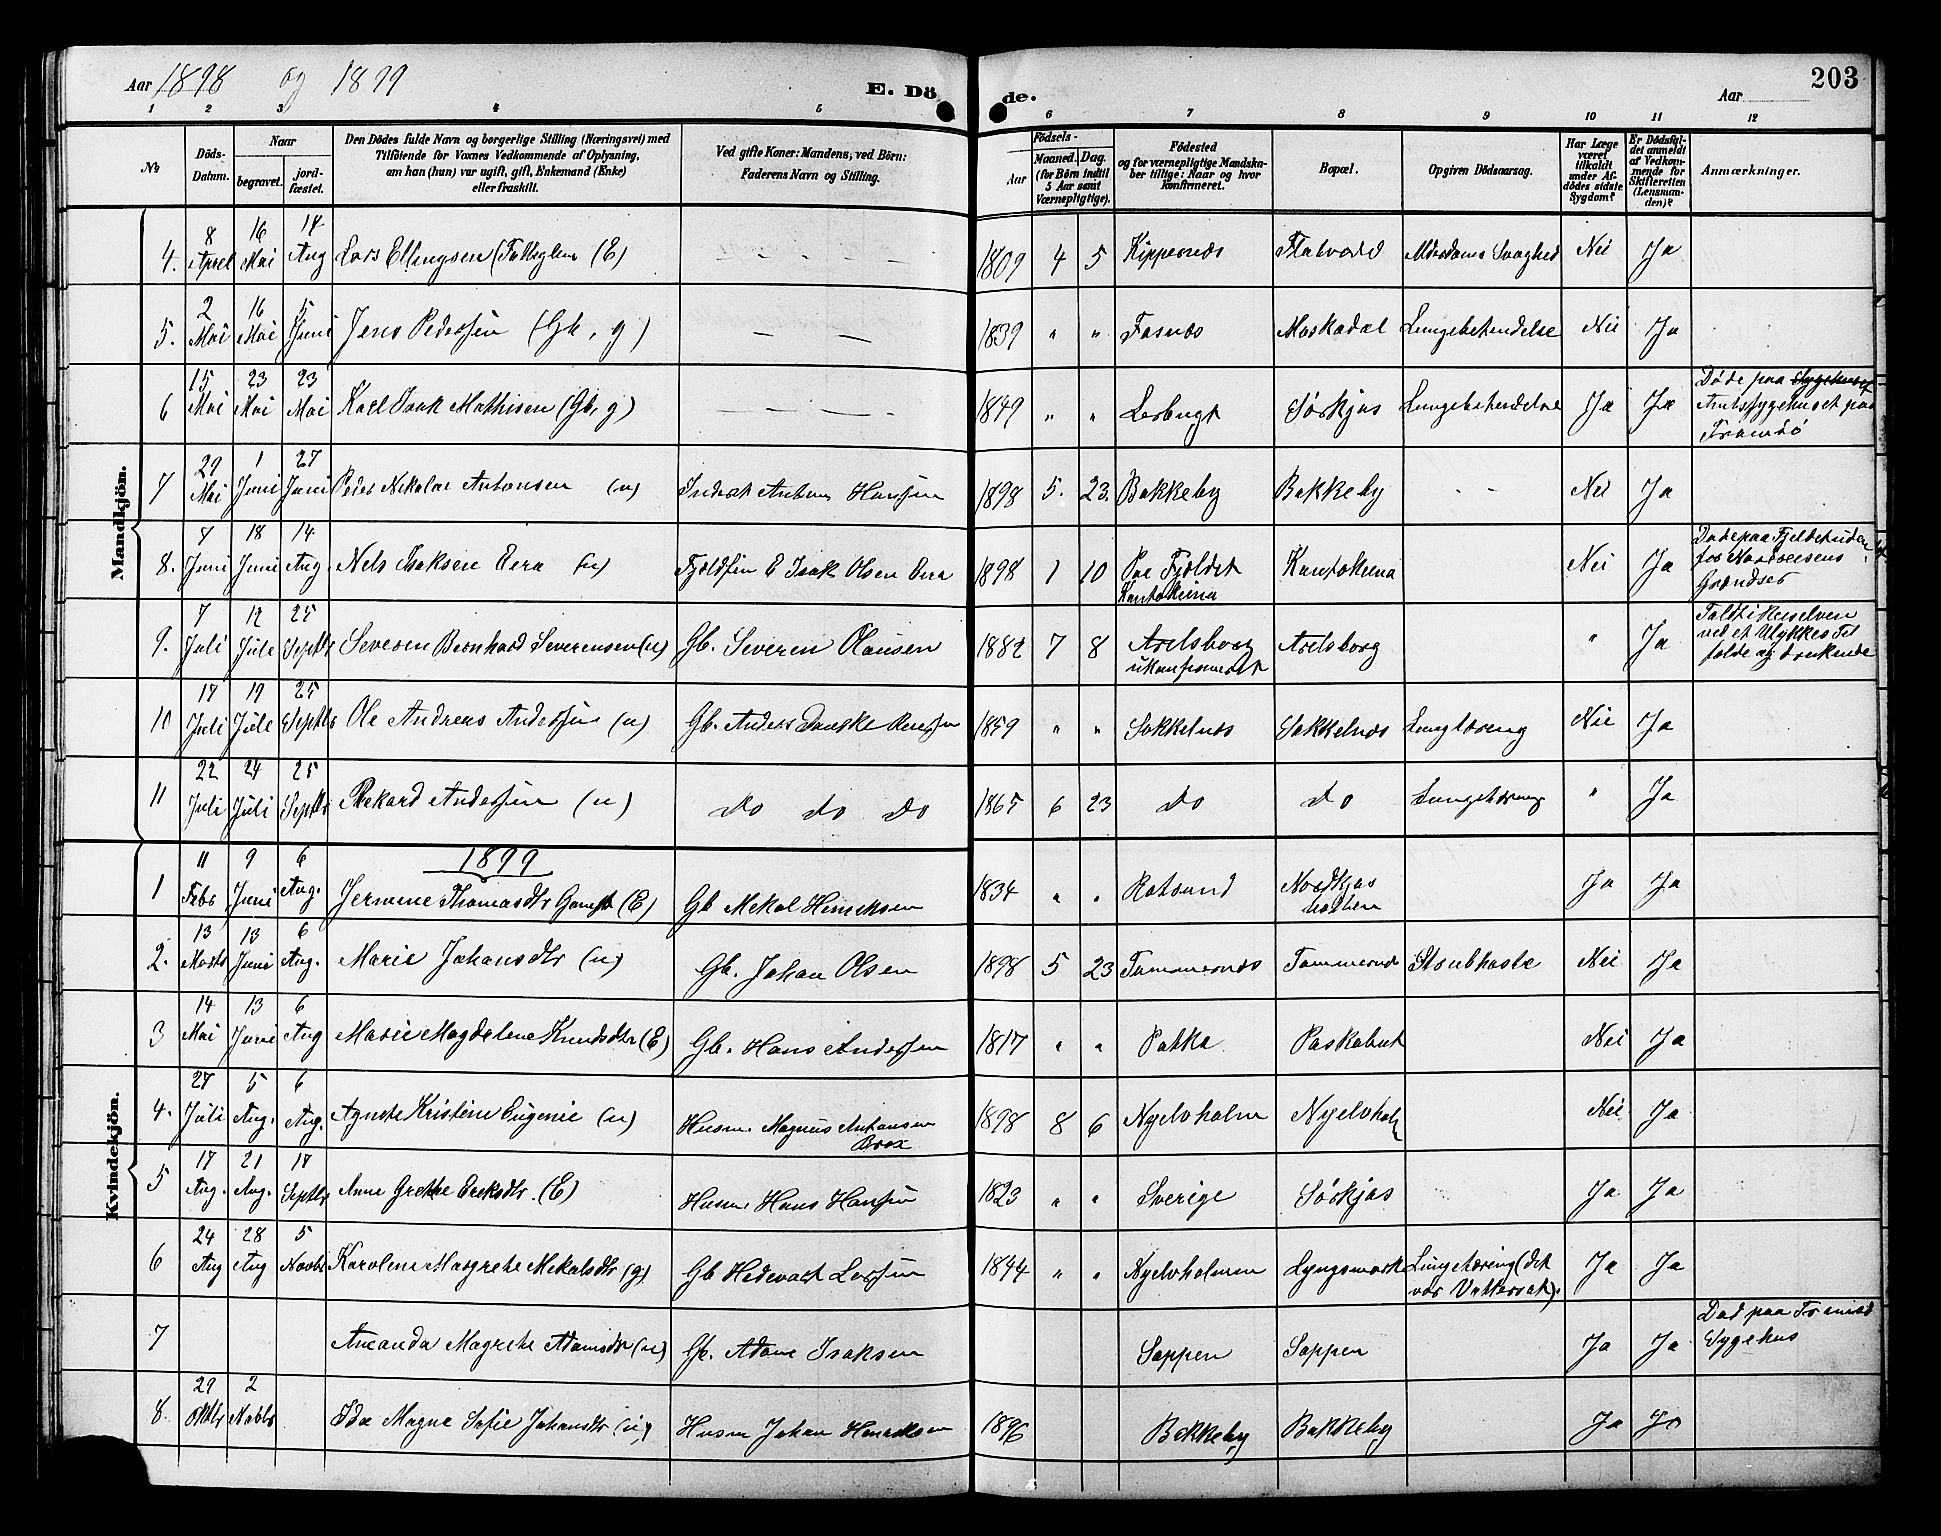 Aar 1898 og 1899
E. Dö
de.
Aar
203
1 2 3 4 5 6 7 8 9 10 11 12
№
Döds-Datum.
Naar
begravet.
jord-fæstet.
Den Dödes fulde Navn og borgerlige Stilling (Næringsvei) med
Tilföiende for Voxnes Vedkommende af Oplysning,
om han (hun) var ugift, gift, Enkemand (Enke)
eller fraskilt.
Ved gifte Koner: Mandens; ved Börn:
Faderens Navn og Stilling.
Födsels-
Aar
Maaned. Dag.
(for Börn indtil
5 Aar samt
Værnepligtige).
Födested
og for værnepligtige Mandska-
ber tillige: Naar og hvor
konfirmeret.
Bopæl.
Opgiven Dödsaarsag.
Har Læge
været
tilkaldt
under Af-
dödes sidste
Sygdom?
Er Dödsfal-
det anmeldt
af Vedkom-
mende for
Skifteretten
(Lensman-
den)?
Anmærkninger.
Mandkjön.
4. 8 April 16 Mai 14 Aug Lars Ellingsen (E) 1809 4 5 Kippernæs Flatvold Alderdoms Svaghed Nei Ja
5. 2 Mai 16 Mai 5 Juni Jens Pedersen (Gb, g) — — — 1839 " " Fosnæs Maskadal Lungebetendelse Nei Ja
6 15 Mai 23 Mai 23 Mai Karl Isak Mathisen (Gb, g) — — — 1849 " " Lerbugt Sørkjos Lungebetændelse Ja Ja Døde paa Sygehuset
Amtssygehuset paa
Tromsø
7 29 Mai 1 Juni 27 Juni Peder Nikolai Antonsen (u) Inderst Anton Hansen 1898 5. 23. Bakkeby Bakkeby - - Nei Ja
8. 7 Juni 18 Juni 14 Aug Nels Isaksen Eira (u) Fjeldfin E Isak Olsen Eira 1898 1 10 Paa Fjeldet
Kautokeino Kautokeino Nei Ja Døde paa Fjeldet uden
for Grændser
9. 7 Juli 12 Juli 25 Septbr Severin Bernhard Severinsen (u) Gb. Severin Olausen 1882 7 8 Axelsborg
ukonfirmeret Axelsborg " Ja Faldt i Reiselven
ved et Ulykkes Til
fælde og druknede
10 17 Juli 19 Juli 25 Septbr Ole Andreas Andersen (u) Gb. Anders 1859 " " Sokkelnæs Sokkelnæs Lungtæring Nei Ja
11 22 Juli 24 Juli 25 Septbr Rikard Andersen (u) do do do 1865 6 23 do do Lungetæring " Ja
Kvindekjön.
1899
1 11 Febr 9 Juni 6 Aug. Jermine Thomasdtr (E) Gb Mikal Henriksen 1834 " " Rotsund Nordkjos
botten Ja Ja
2. 13 Marts 13 Juni 6 Aug. Marie Johansdtr (u) Gb. Johan Olsen 1898 5 23 Tømmernæs Tømmernæs Strubhoste Nei Ja
3 14 Mai 13 Juni 6 Aug Marie Magdelene Knudsdtr (E) Gb. Hans Andersen 1817 " " Pokka Nei Ja
4. 27 Juli 5 Aug. 6 Aug. Agnete Kristine Eugenie (u) Husm. Magnus Antonsen
Brox 1898 8 6 Nyelvholm Nyelvholm Nei Ja
5 17 Aug. 21 Aug. 17 Septbr Anne Grethe Eriksdtr. (E) Husm. Hans Hansen 1823 " " Sverige Sørkjos Ja Ja
6 24 Aug 28 Aug 5 Novbr Karoline Margrete Mikalsdtr (g) Gb Hedevart Larsen 1844 " " Nyelvholmen Lyngsmark Lungetæring (det
var Vattersot). Ja Ja
7 Amanda Magrete Adamsdtr (u) Gb. Adam Isaksen Sappen Sappen Ja Ja Død paa Tromsø
Sygehus
8. 29 Oktbr 2 Novbr Ida Magna Sofie Johansdtr (u) Husm Johan Henriksen 1896 Bakkeby Bakkeby Ja Ja